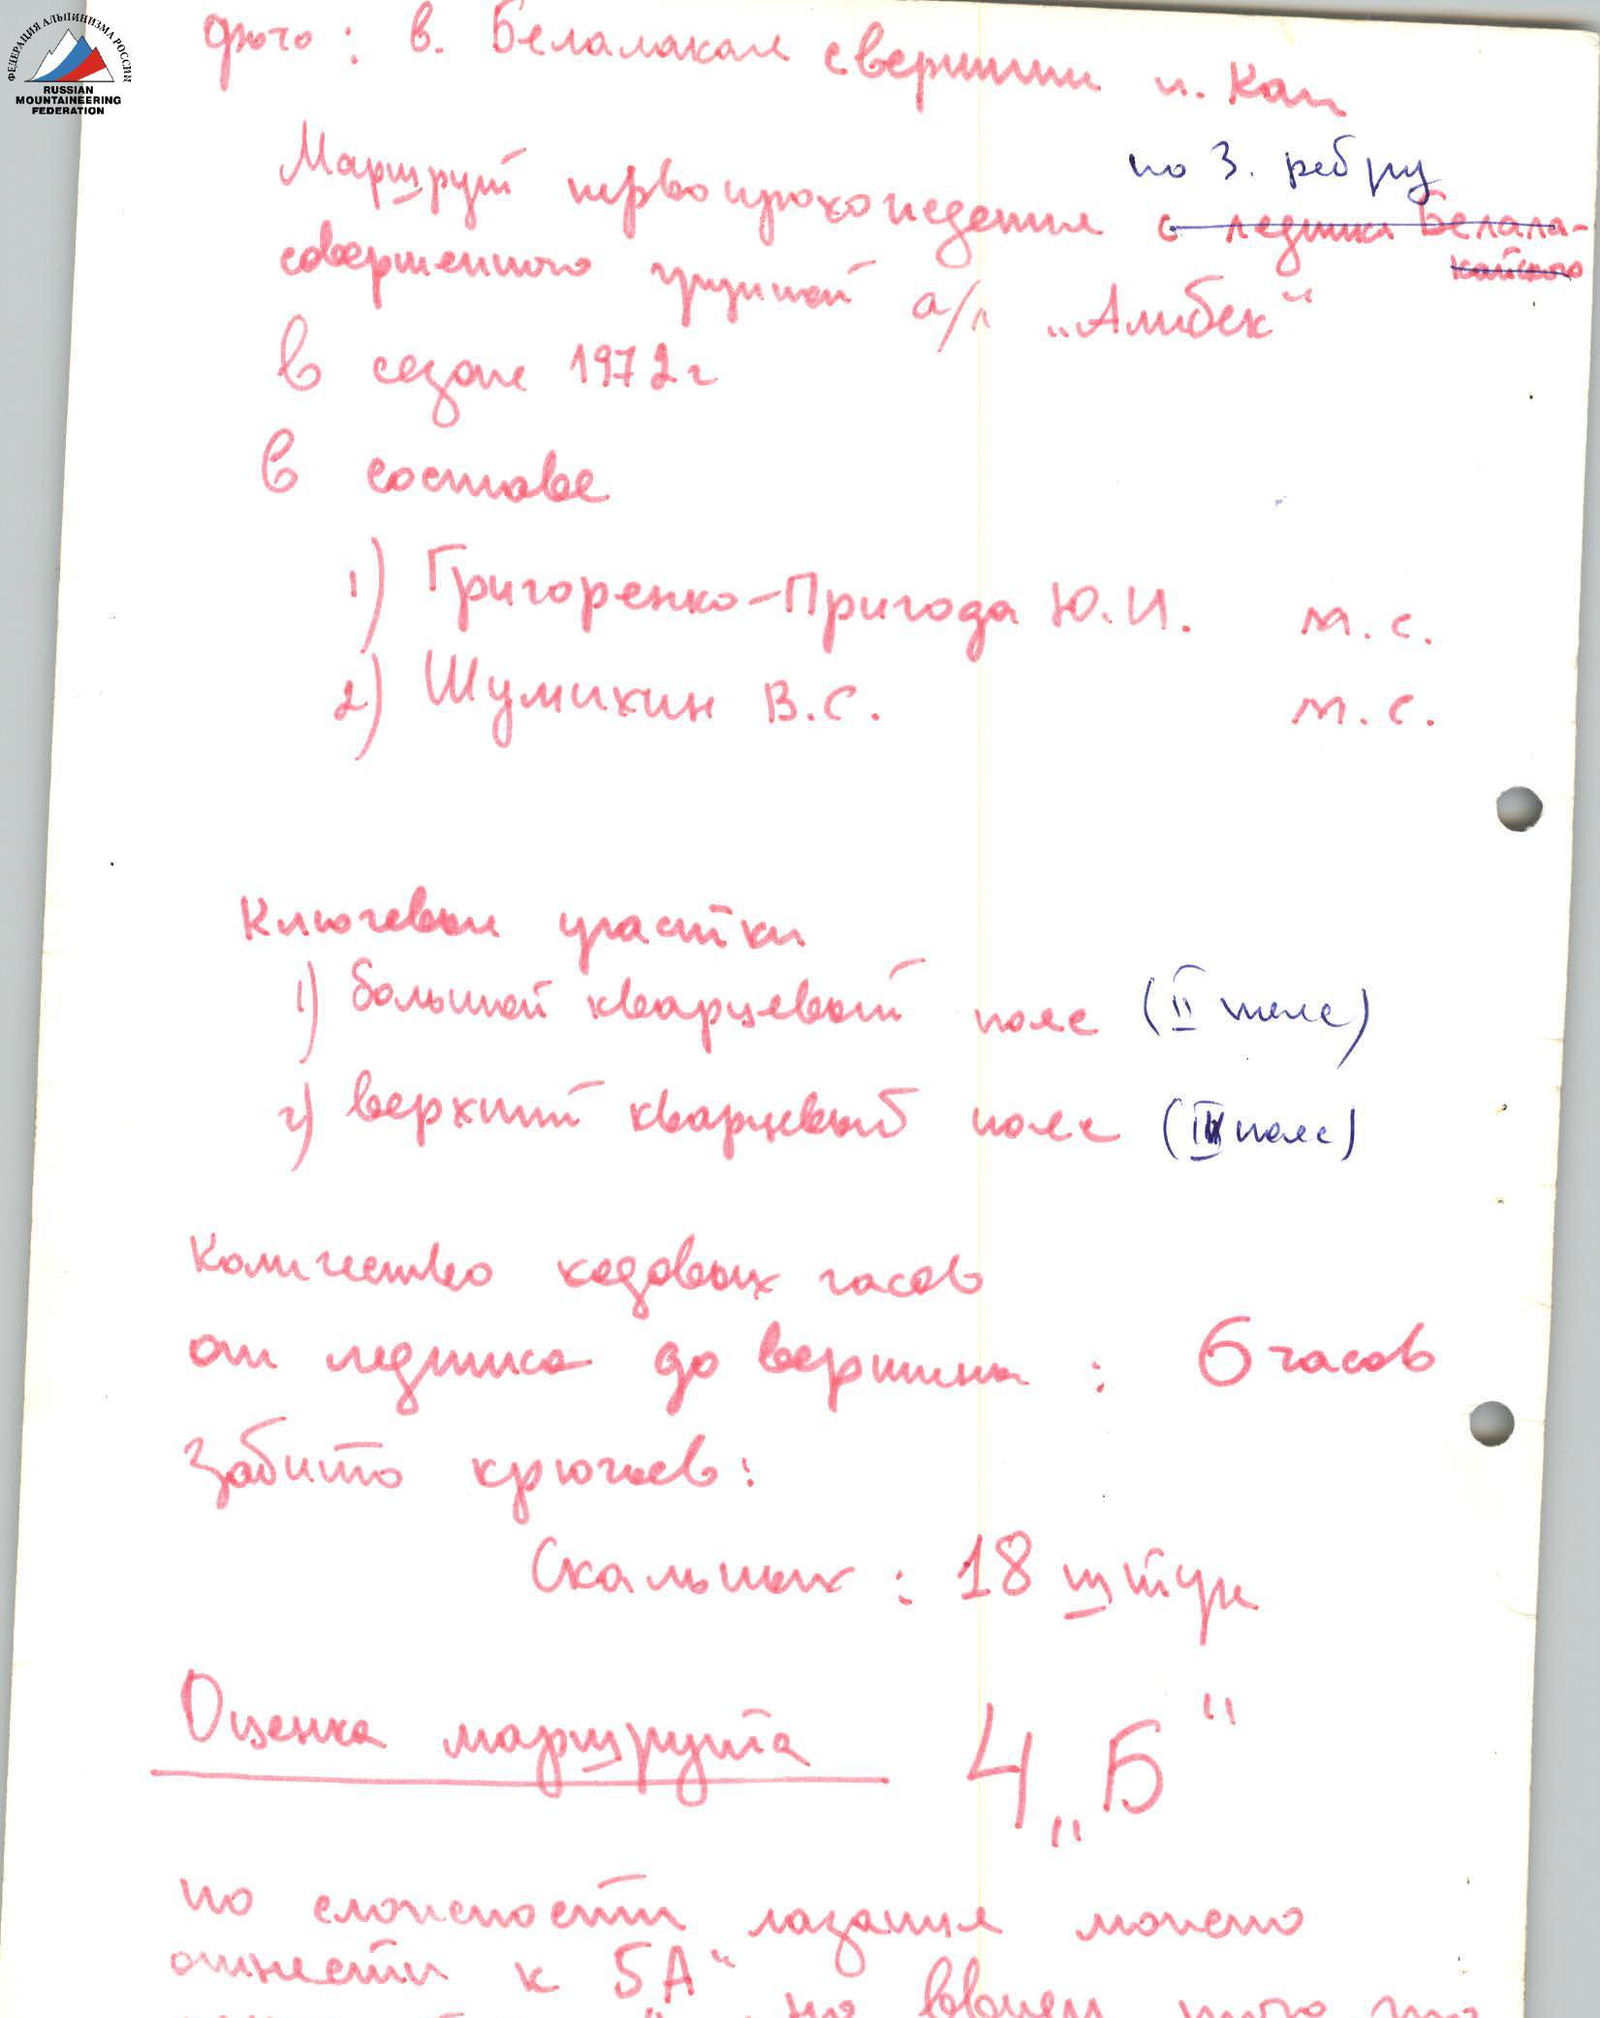 ФЕДЕРАЦИЯ АЛЬПИНИЗМА РОССИИ
RUSSIAN
MOUNTAINEERING
FEDERATION
фото: в. Белалакая с вершины п. Кап
по З. ребру
Маршрут первопрохождения с ледника Белала-
кайского
совершенного группой а/л „Алибек“
в сезоне 1972г
в составе
1) Григоренко-Пригода Ю.И. м.с.
2) Шумихин В.С. м.с.
Ключевые участки
1) большой кварцевый пояс (II пояс)
2) верхний кварцевый пояс (пояс)
Количество ходовых часов
от ледника до вершины: 6 часов
Забито крючьев:
Скальных: 18 штук
Оценка маршрута 4 „Б“
по сложности лазания можно
отнести к 5А“